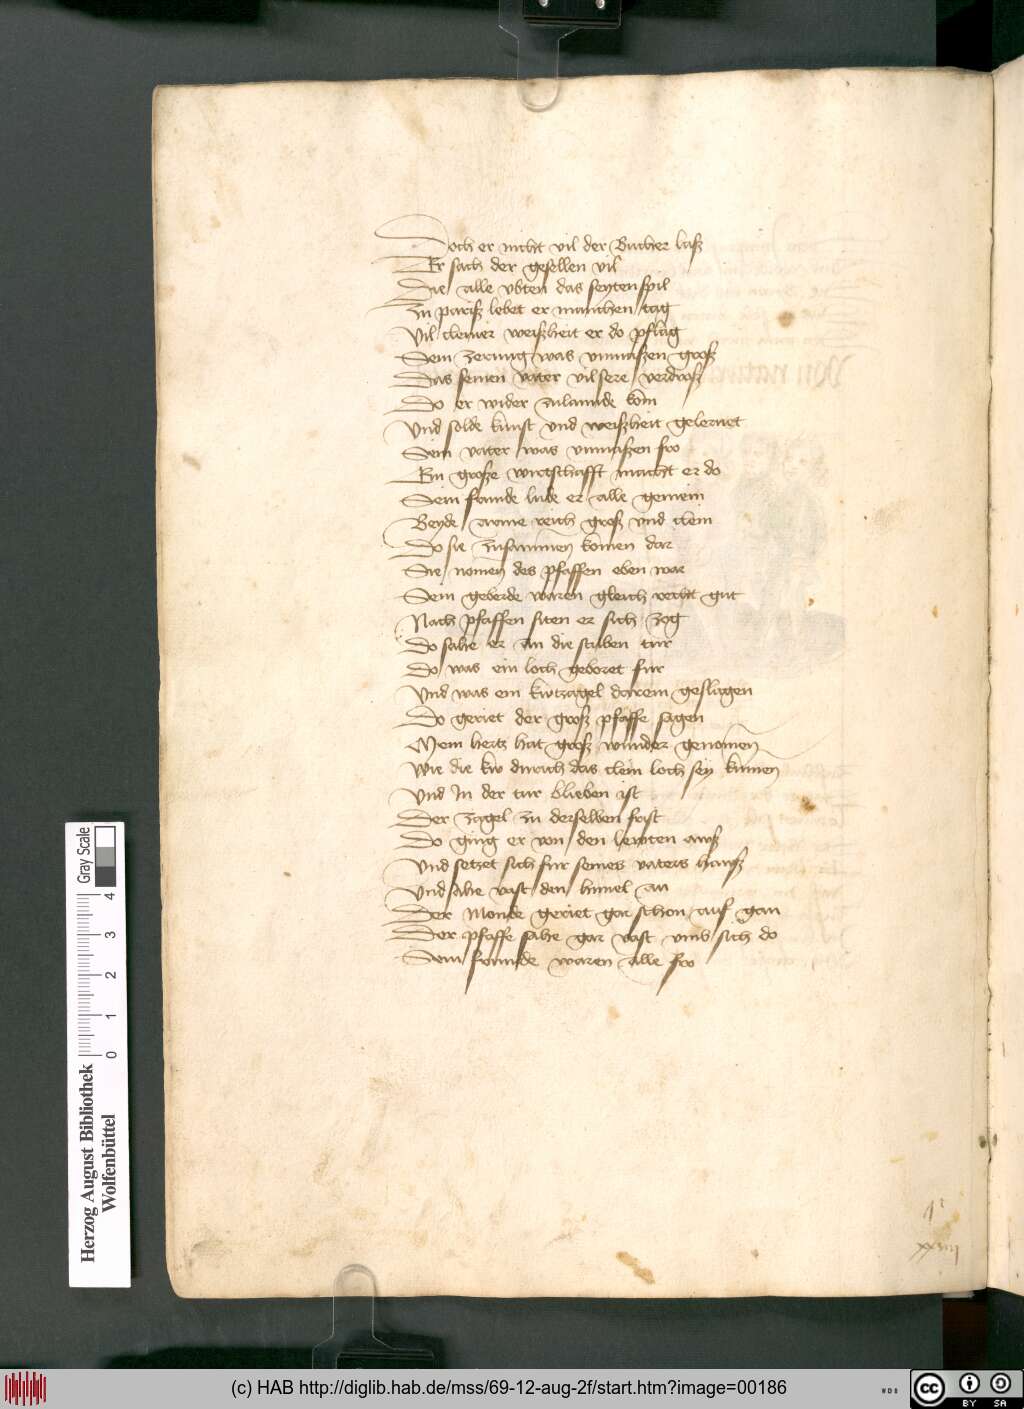 Doch er nicht vil der Bucher laß
Er sach der gesellen vil
Die alle vbten das seytenspil
Zu pariß lebet er manchen tag
Vil cleiner weißheit er do pflag
Sein zerung was vnmaßen groß
Das seinen vater vil sere verdroß
Do er wider zu lannde kom
Vnd solde kunst vnd weißheit gelernet
Sein vater was vnmaßen fro
Ein große wirtschafft macht er do
Sein frunde lude er alle gemein
Beyde arme reich groß vnd clein
Do sie zusammen komen dar
Sie nomen des pfaffen eben war
Sein geberde waren gleich recht gut
Nach pfaffen siten er sich zog
Do sahe er an die stuben tur
Do was ein loch geboret fur
Vnd was ein kwzagel darein geslagen
Do geriet der groß pfaffe sagen
Mein hertz hat groß wunder genomen
Wie die kw durch das clein loch sey kumen
Vnd In der tur blieben ist
Der zagel zu derselben frist
Do ging er von den lewten awß
Vnd setzet sich fur seines vaters hauß
Vnd sahe vast den himel an
Der Monde geriet gar schon auf gan
Der pfaffe sahe gar vast vmb sich do
Sein frunde waren alle fro
xxiiij
Herzog August Bibliothek
Wolfenbüttel
Gray Scale
0 1 2 3 4
(c) HAB http://diglib.hab.de/mss/69-12-aug-2f/start.htm?image=00186
WDB
cc BY SA